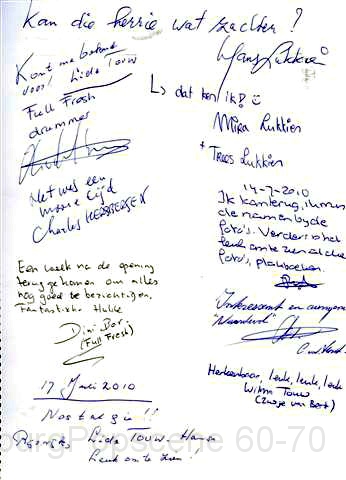 Kan die herrie wat zachter?
Komt me bekend
voor! Lida Touw
Full Fresh
drummer
Het was een
mooie tijd
Charles HERBERGEN
Een week na de opening
terug gekomen om alles
nog goed te bezichtigen.
Fantastische Hulde
Dini Bor.
(Full Fresh)
17 Juli 2010
Nostalgie!!
Lida Touw-Hansen
Leuk om te zien!
Hans Lukkien
L> dat ben ik!
Mira Lukkien
* Troos Lukkien
14-7-2010
Ik kan terug, ik mis
de namen by de
foto's. Verder is het
leuk om te zien al die
foto's, plakboeken.
Interessant en
"Naarderd"
Herkenbaar, leuk, leuk, leuk
Wilma Touw
(Zusje van Bert)
burgPopscene 60-70